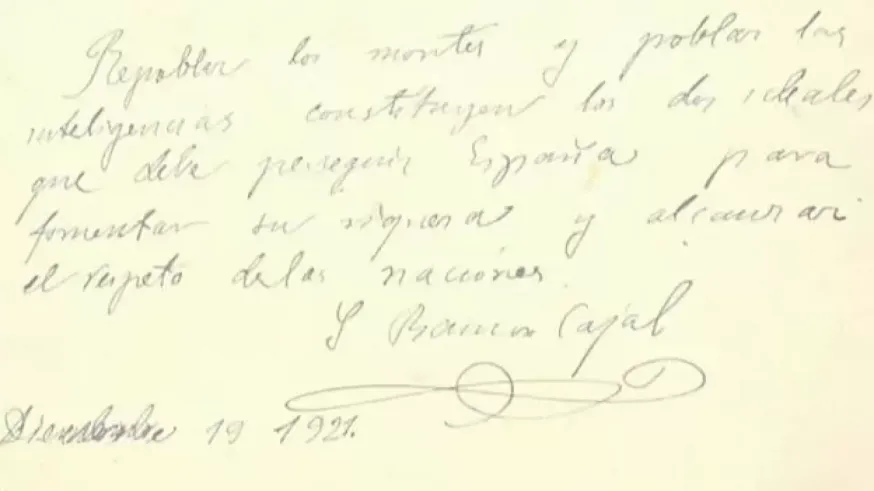 Repoblar los montes y poblar las
inteligencias constituyen los dos ideales
que debe perseguir España para
fomentar su riqueza y alcanzar
el respeto de las naciones.
S Ramon Cajal
Diciembre 19 1921.